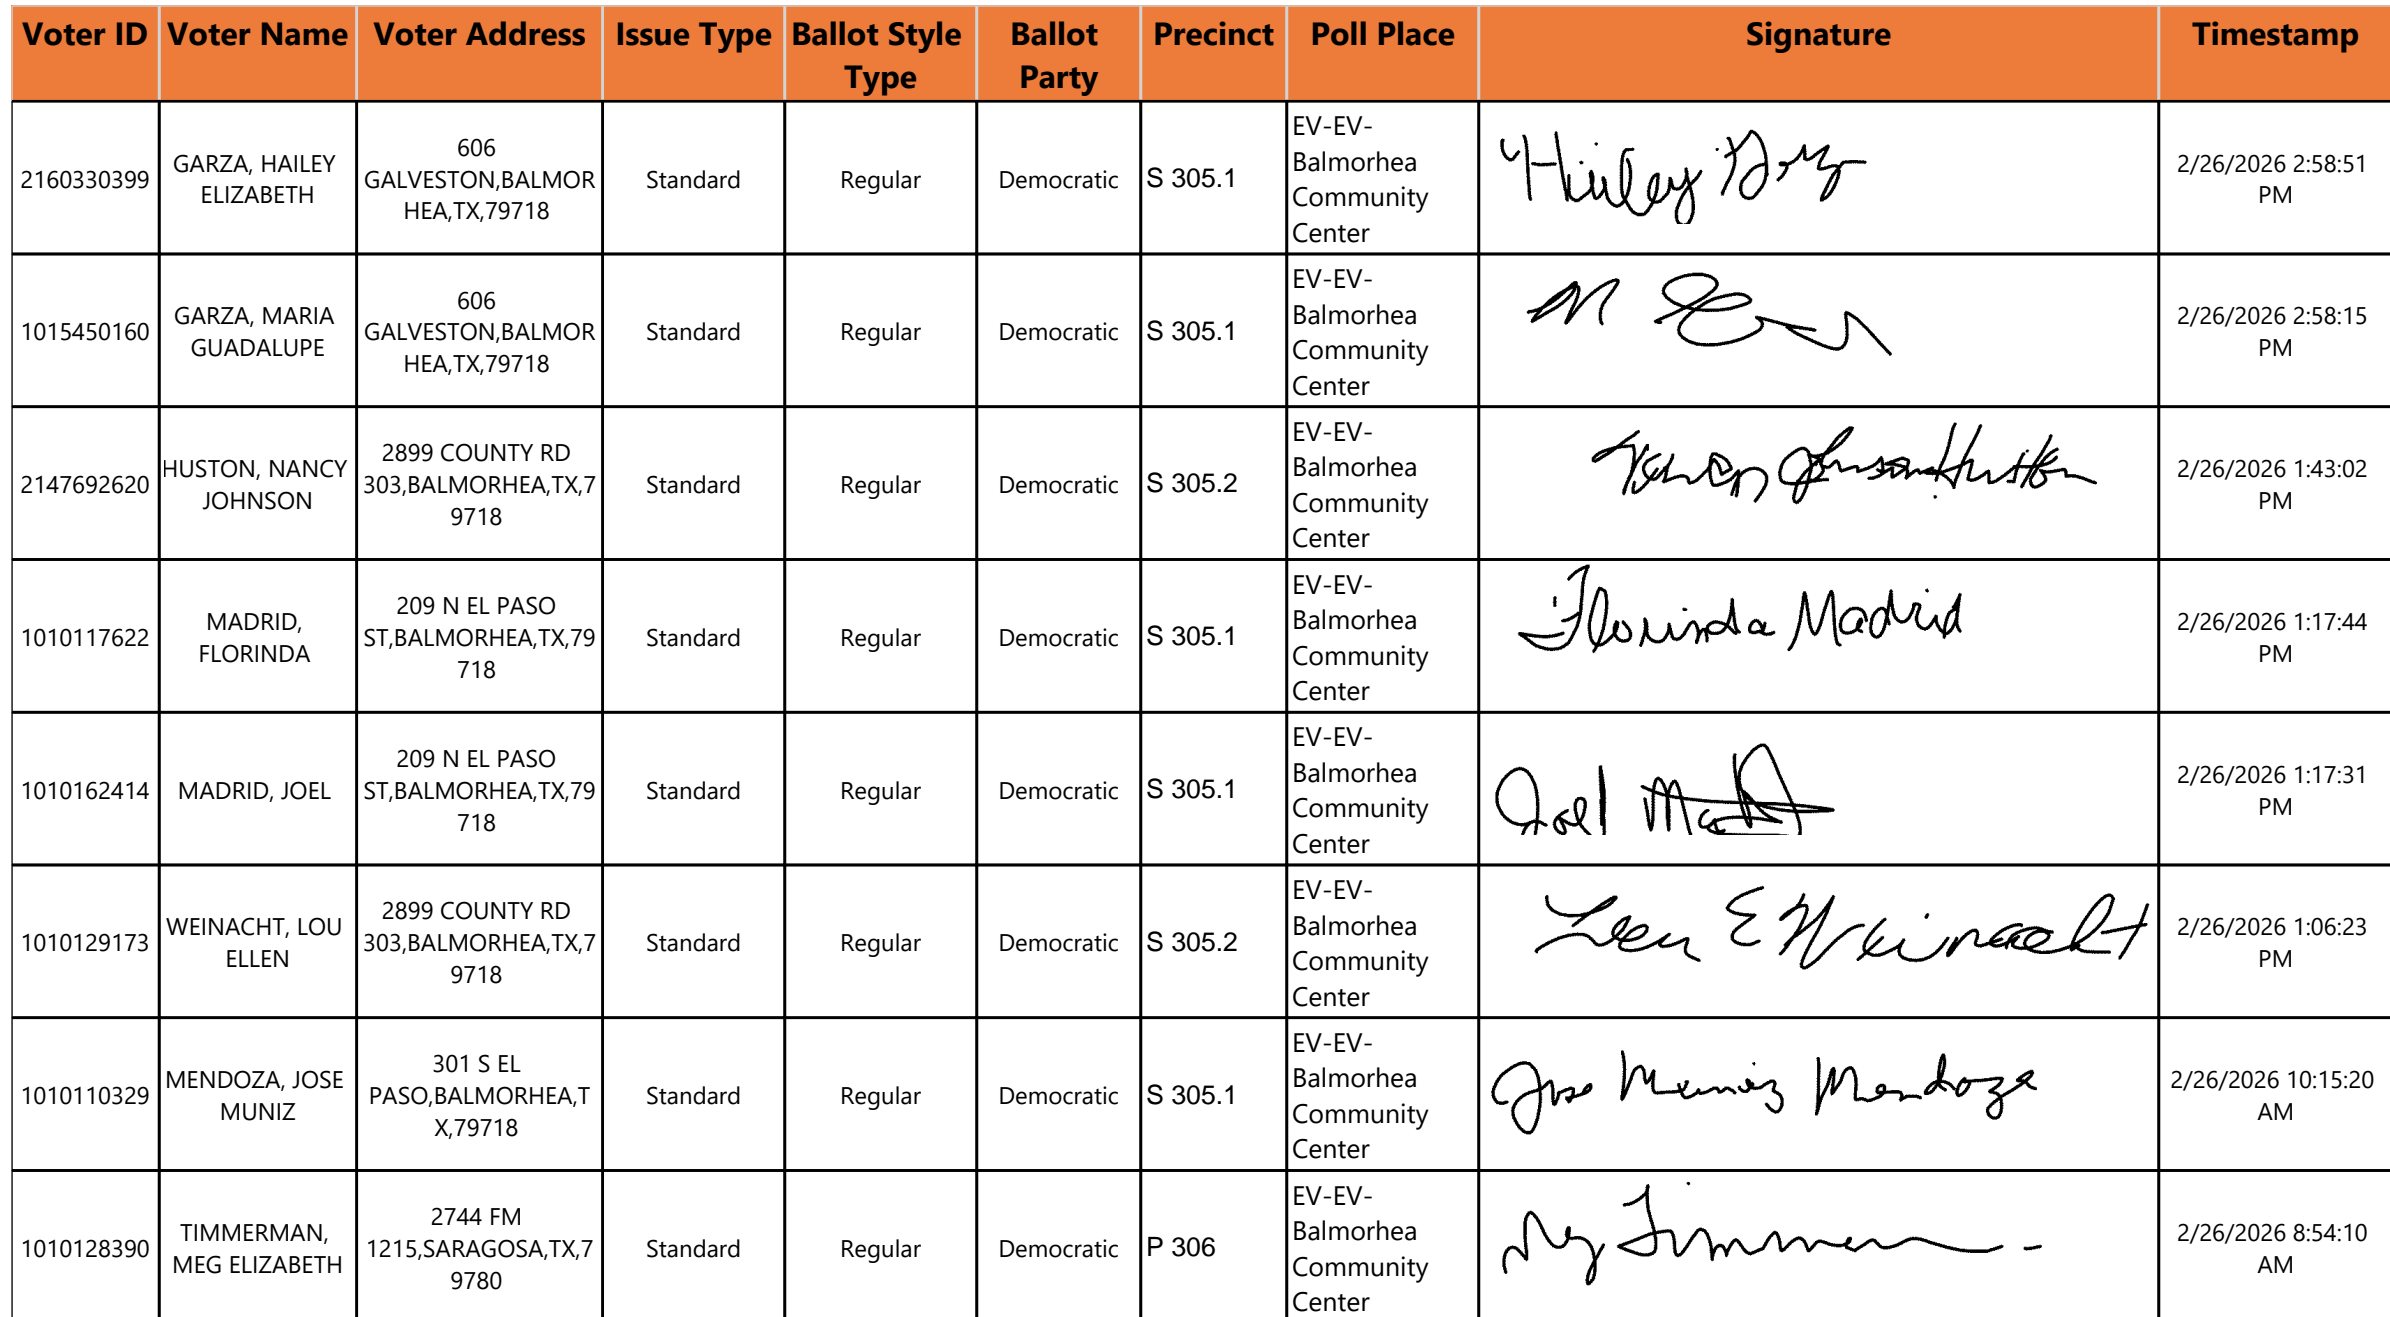 Voter ID Voter Name Voter Address Issue Type Ballot Style Type Ballot Party Precinct Poll Place Signature Timestamp
2160330399
GARZA, HAILEY
ELIZABETH
606
GALVESTON,BALMOR
HEA,TX,79718
Standard
Regular
Democratic
S 305.1
EV-EV-
Balmorhea
Community
Center
Hailey Garza
2/26/2026 2:58:51
PM
1015450160
GARZA, MARIA
GUADALUPE
606
GALVESTON,BALMOR
HEA,TX,79718
Standard
Regular
Democratic
S 305.1
EV-EV-
Balmorhea
Community
Center
M
2/26/2026 2:58:15
PM
2147692620
HUSTON, NANCY
JOHNSON
2899 COUNTY RD
303,BALMORHEA,TX,7
9718
Standard
Regular
Democratic
S 305.2
EV-EV-
Balmorhea
Community
Center
Nancy Johnson Huston
2/26/2026 1:43:02
PM
1010117622
MADRID,
FLORINDA
209 N EL PASO
ST,BALMORHEA,TX,79
718
Standard
Regular
Democratic
S 305.1
EV-EV-
Balmorhea
Community
Center
Florinda Madrid
2/26/2026 1:17:44
PM
1010162414
MADRID, JOEL
209 N EL PASO
ST,BALMORHEA,TX,79
718
Standard
Regular
Democratic
S 305.1
EV-EV-
Balmorhea
Community
Center
Joel
2/26/2026 1:17:31
PM
1010129173
WEINACHT, LOU
ELLEN
2899 COUNTY RD
303,BALMORHEA,TX,7
9718
Standard
Regular
Democratic
S 305.2
EV-EV-
Balmorhea
Community
Center
E Weinacht
2/26/2026 1:06:23
PM
1010110329
MENDOZA, JOSE
MUNIZ
301 S EL
PASO,BALMORHEA,T
X,79718
Standard
Regular
Democratic
S 305.1
EV-EV-
Balmorhea
Community
Center
Jose Muniz Mendoza
2/26/2026 10:15:20
AM
1010128390
TIMMERMAN,
MEG ELIZABETH
2744 FM
1215,SARAGOSA,TX,7
9780
Standard
Regular
Democratic
P 306
EV-EV-
Balmorhea
Community
Center
Meg
2/26/2026 8:54:10
AM